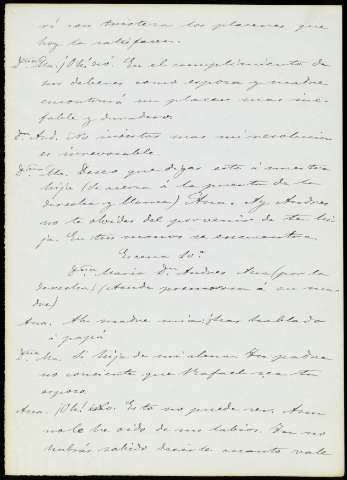 rá con tristeza los placeres que
hoy la satisfacen.
Dña Ma. ¡Oh! no. En el cumplimiento de
sus deberes como esposa y madre
encontrará un placer mas ine-
fable y duradero.
Dn. And. No insistas mas mi resolucion
es irrevocable.
Dña Ma. Deseo que digas esto á nuestra
hija (se acerca á la puerta de la
derecha y llama) Ana. Ay Andres
no te olvides del porvenir de tu hi-
ja. En tus manos se encuentra.
Escena 10ª
Dña Maria Dn. Andres Ana (por la
derecha) (Ana
á su ma-
dre)
Ana. Ah madre mia ¿has hablado
á papá
Dña Ma. Si hija de mi alma. Tu padre
no consiente que Rafael sea tu
esposo.
Ana. ¡Oh! no. Esto no puede ser. Aun
no lo he oido de sus labios. Tu no
habrás sabido decirle cuanto vale